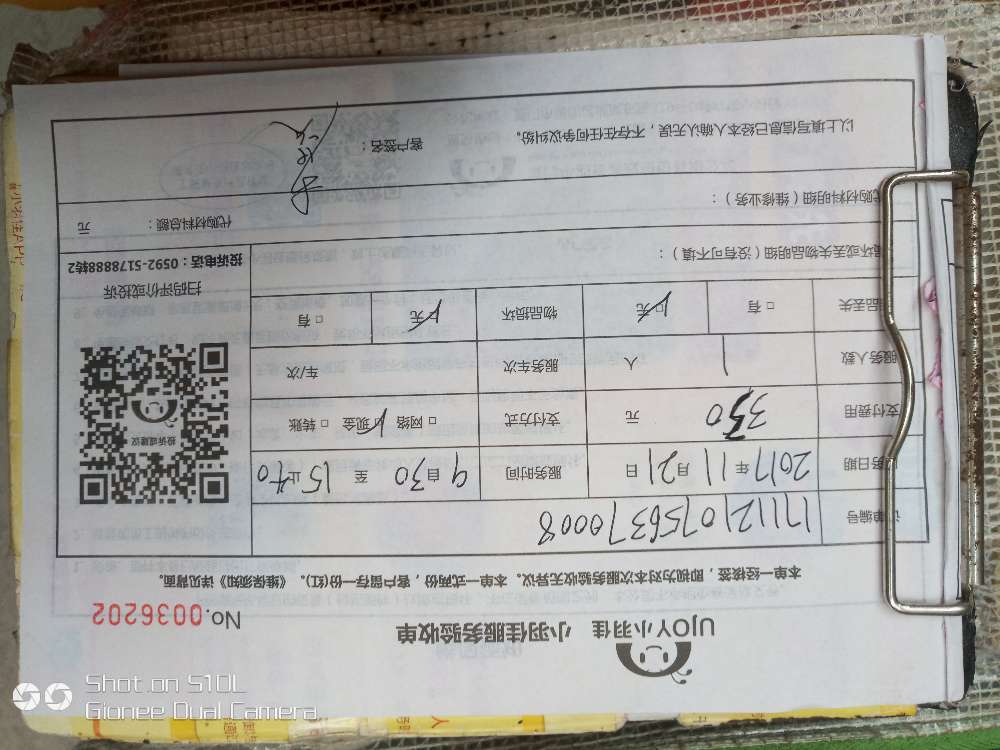 UJOY小羽佳 小羽佳服务验收单
No.0036202
本单一经核签，即视为对本次服务验收无异议。本单一式两份，客户留存一份(红)。《维保须知》详见背面。
单编号 1711210756370008
务日期 2017年11月21日 服务时间 9自30至15止40
支付费用 350 元 支付方式 □网络 ☑现金 □转账
服务人数 1 人 服务车次 车/次
品丢失 □有 ☑无 物品损坏 ☑无 □有
投诉或建议
扫码评价或投诉
投诉电话：0592-5178888转2
损坏或丢失物品明细（没有可不填）：
代购材料明细（维修业务）：
代购材料总额： 元
以上填写信息已经本人确认无误，不存在任何争议纠纷。 客户签名：
小羽佳APP
Shot on S10L
Gionee Dual Camera